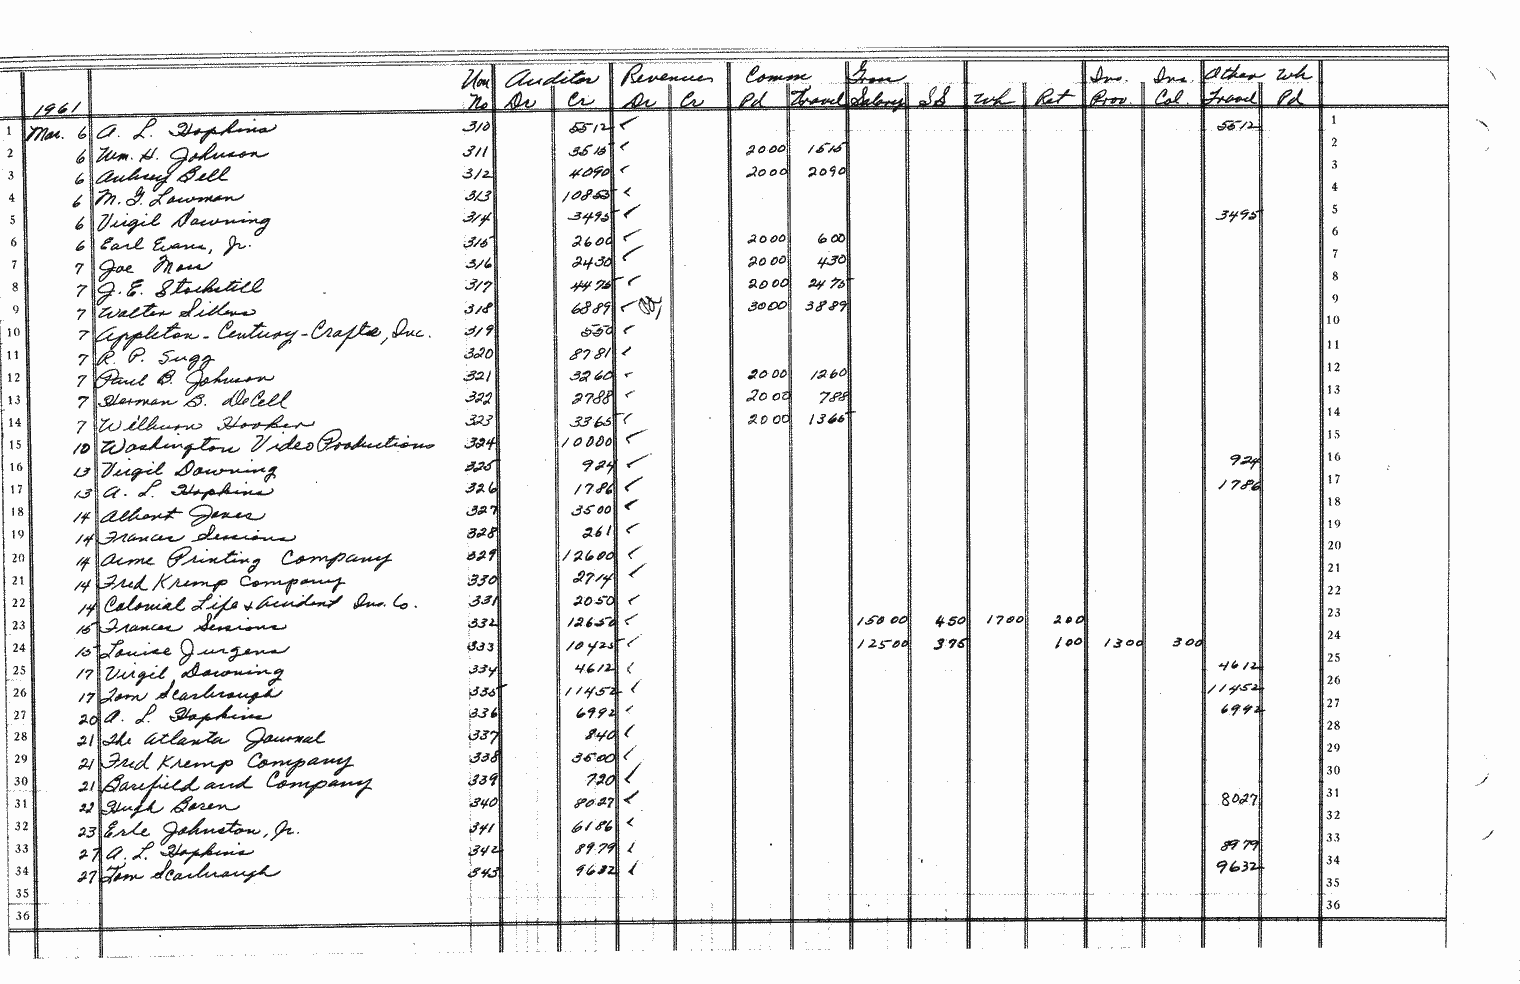 Vou Auditor Revenues Comm Gross Ins. Ins. Other Wh
1961 No Dr Cr Dr Cr Pd Travel Salary SS Wh Ret Prov. Col. Travel Pd
1 Mar. 6 A. L. Hopkins 310 5512 ✓ 5512 1
2 6 Wm. H. Johnson 311 3515 ✓ 2000 1515 2
3 6 Aubrey Bell 312 4090 ✓ 2000 2090 3
4 6 M. G. Lowman 313 10853 ✓ 4
5 6 Virgil Downing 314 3495 ✓ 3495 5
6 6 Earl Evans, Jr. 315 2600 ✓ 2000 600 6
7 7 Joe Moss 316 2430 ✓ 2000 430 7
8 7 J. E. Stockstill 317 4475 ✓ 2000 2475 8
9 7 Walter Sillers 318 6889 ✓ 3000 3889 9
10 7 Appleton-Century-Crafts, Inc. 319 550 ✓ 10
11 7 R. P. Sugg 320 8781 ✓ 11
12 7 Paul B. Johnson 321 3260 ✓ 2000 1260 12
13 7 Herman B. DeCell 322 2788 ✓ 2000 788 13
14 7 Wilburn Hooker 323 3365 ✓ 2000 1365 14
15 10 Washington Video Productions 324 10000 ✓ 15
16 13 Virgil Downing 325 924 ✓ 924 16
17 13 A. L. Hopkins 326 1786 ✓ 1786 17
18 14 Albert Jones 327 3500 ✓ 18
19 14 Frances Sessions 328 261 ✓ 19
20 14 Acme Printing Company 329 12600 ✓ 20
21 14 Fred Kremp Company 330 2714 ✓ 21
22 14 Colonial Life & Accident Ins. Co. 331 2050 ✓ 22
23 15 Frances Sessions 332 12650 ✓ 15000 450 1700 200 23
24 15 Louise Jurgens 333 10425 ✓ 12500 375 100 1300 300 24
25 17 Virgil Downing 334 4612 ✓ 4612 25
26 17 Tom Scarbrough 335 11452 ✓ 11452 26
27 20 A. L. Hopkins 336 6992 ✓ 6992 27
28 21 The Atlanta Journal 337 840 ✓ 28
29 21 Fred Kremp Company 338 3500 ✓ 29
30 21 Barefield and Company 339 720 ✓ 30
31 22 Hugh Boren 340 8027 ✓ 8027 31
32 23 Erle Johnston, Jr. 341 6186 ✓ 32
33 27 A. L. Hopkins 342 8979 ✓ 8979 33
34 27 Tom Scarbrough 343 9632 ✓ 9632 34
35 35
36 36